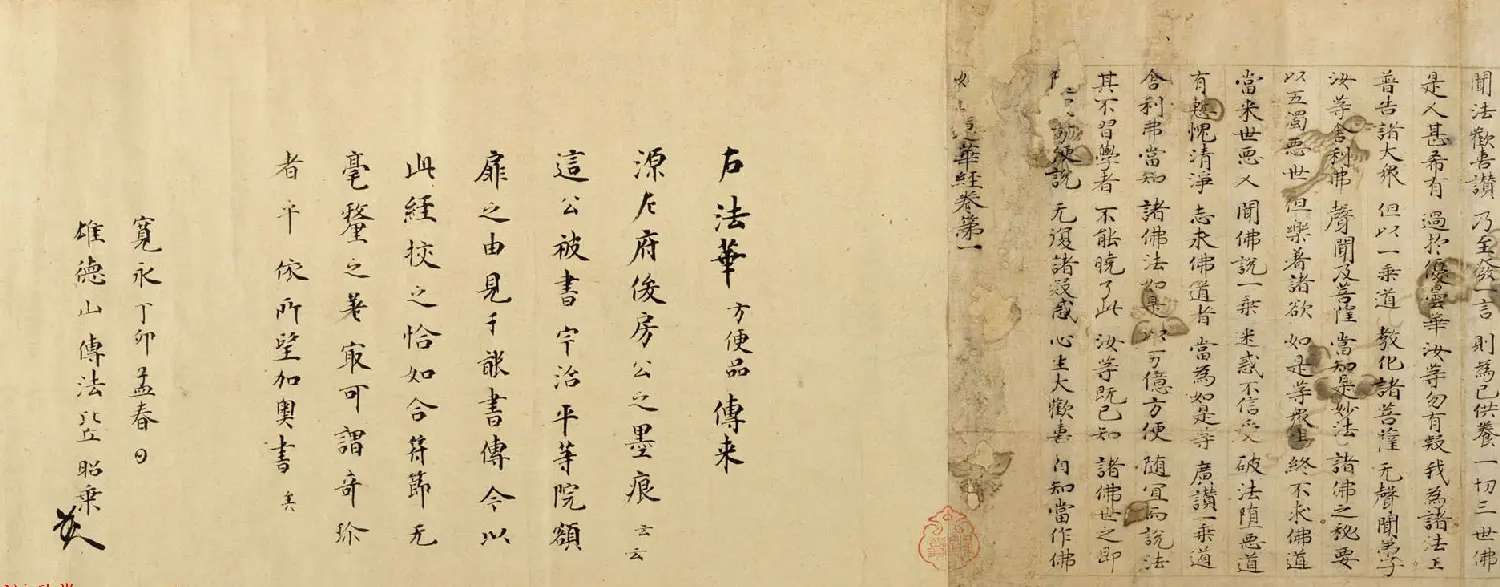 聞法歡喜讃 乃至發一言 則為已供養 一切三世佛
是人甚希有 過於優曇華 汝等勿有疑 我為諸法王
普告諸大衆 但以一乘道 教化諸菩薩 无聲聞弟子
汝等舍利弗 聲聞及菩薩 當知是妙法 諸佛之秘要
以五濁惡世 但樂著諸欲 如是等衆生 終不求佛道
當來世惡人 聞佛說一乘 迷惑不信受 破法墮惡道
有慙愧清淨 志求佛道者 當為如是等 廣讃一乘道
舍利弗當知 諸佛法如是 以万億方便 隨冝而說法
其不習學者 不能曉了此 汝等既已知 諸佛世之師
便說 无復諸疑惑 心生大歡喜 自知當作佛
蓮華経卷第一
右法華方便品傳来
源左府俊房公之墨痕云云
這公被書宇治平等院額
扉之由見于能書傳今以
此経挍之恰如合符節无
毫釐之差寂可謂奇珎
者乎依所望加奥書矣
寛永丁卯孟春日
雄德山傳法比丘昭乗